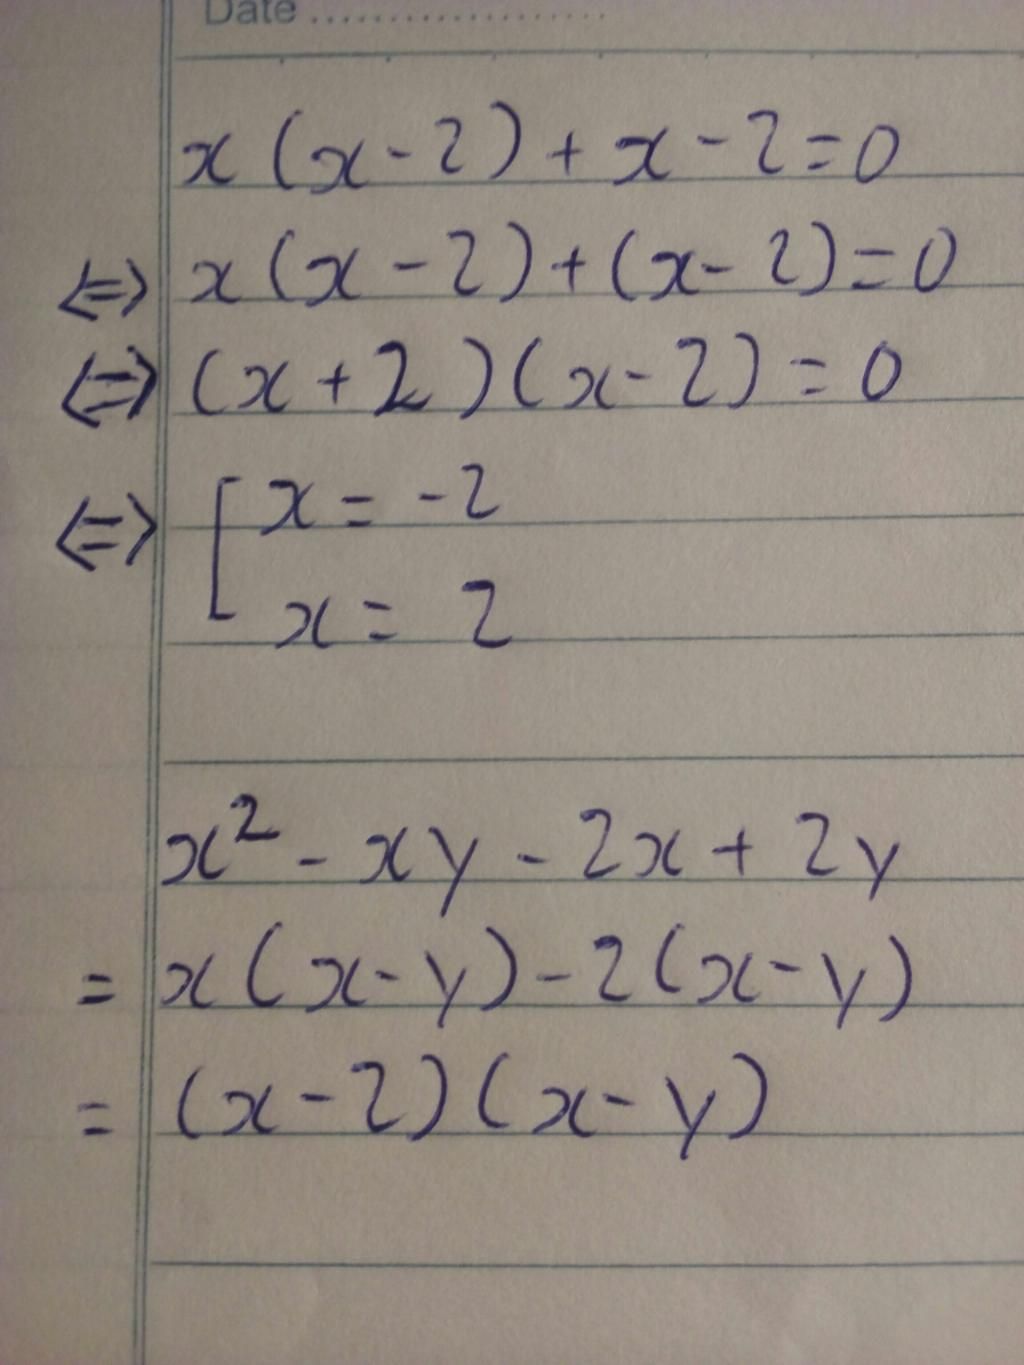 Date ....................
x(x-2)+x-2=0
⇔ x(x-2)+(x-2)=0
⇔ (x+2)(x-2)=0
⇔ [ x = -2
x = 2
x² - xy - 2x + 2y
= x(x-y)-2(x-y)
= (x-2)(x-y)